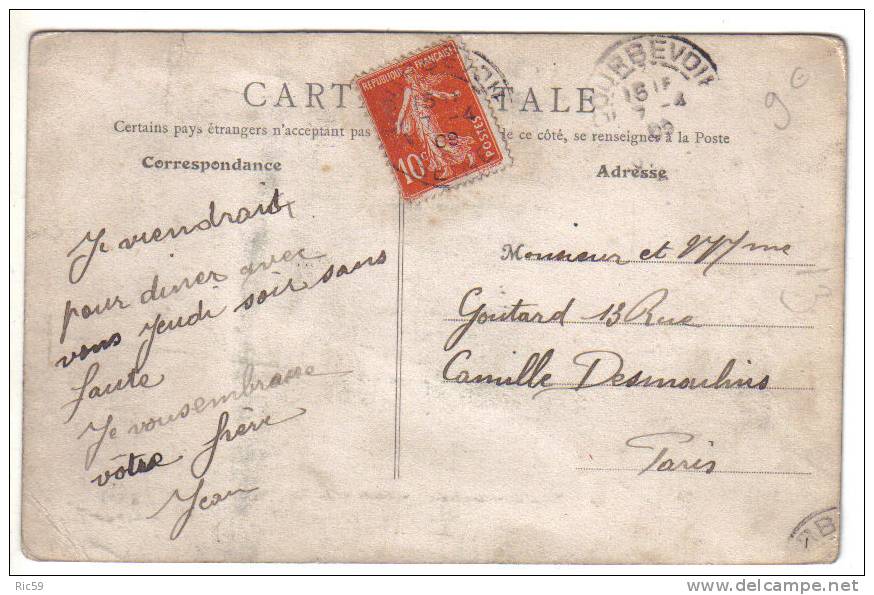 CARTE POSTALE
Certains pays étrangers n'acceptant pas de ce côté, se renseigner à la Poste
Correspondance
Adresse
REPUBLIQUE FRANÇAISE
POSTES
10c
COURBEVOIE
15
7 -4
09
Je viendrait
pour diner avec
vous Jeudi soir sans
faute
Je vous embrasse
votre frère
Jean
Monsieur et Mme
Goutard 13 Rue
Camille Desmoulins
Paris
13
AB
Ric59
www.delcampe.net